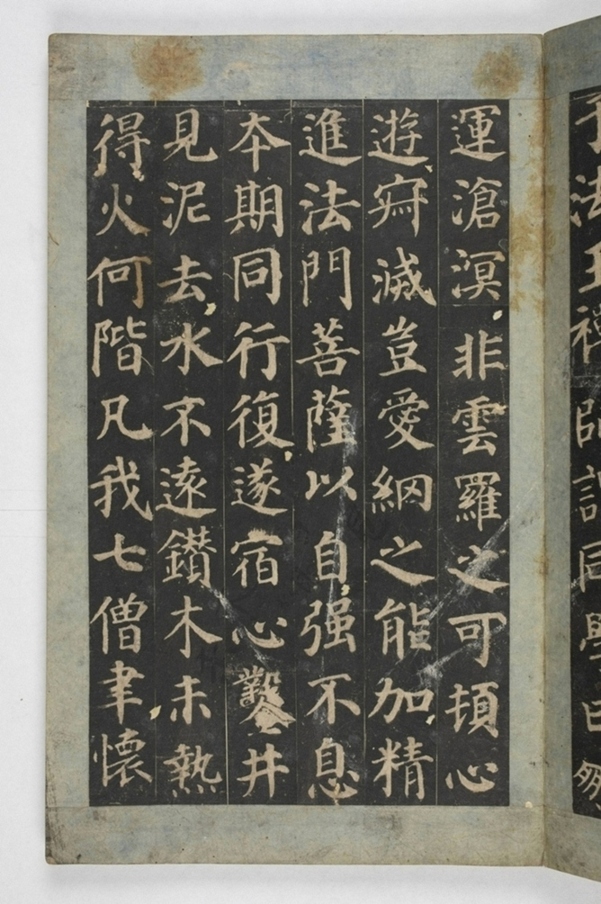 于法玉禪師謂同學曰鵬
運滄溟非雲羅之可頓心
遊寂滅豈愛網之能加精
進法門菩薩以自强不息
夲期同行復遂宿心鑿井
見泥去水不遠鑚木未熱
得火何階凡我七僧聿懷